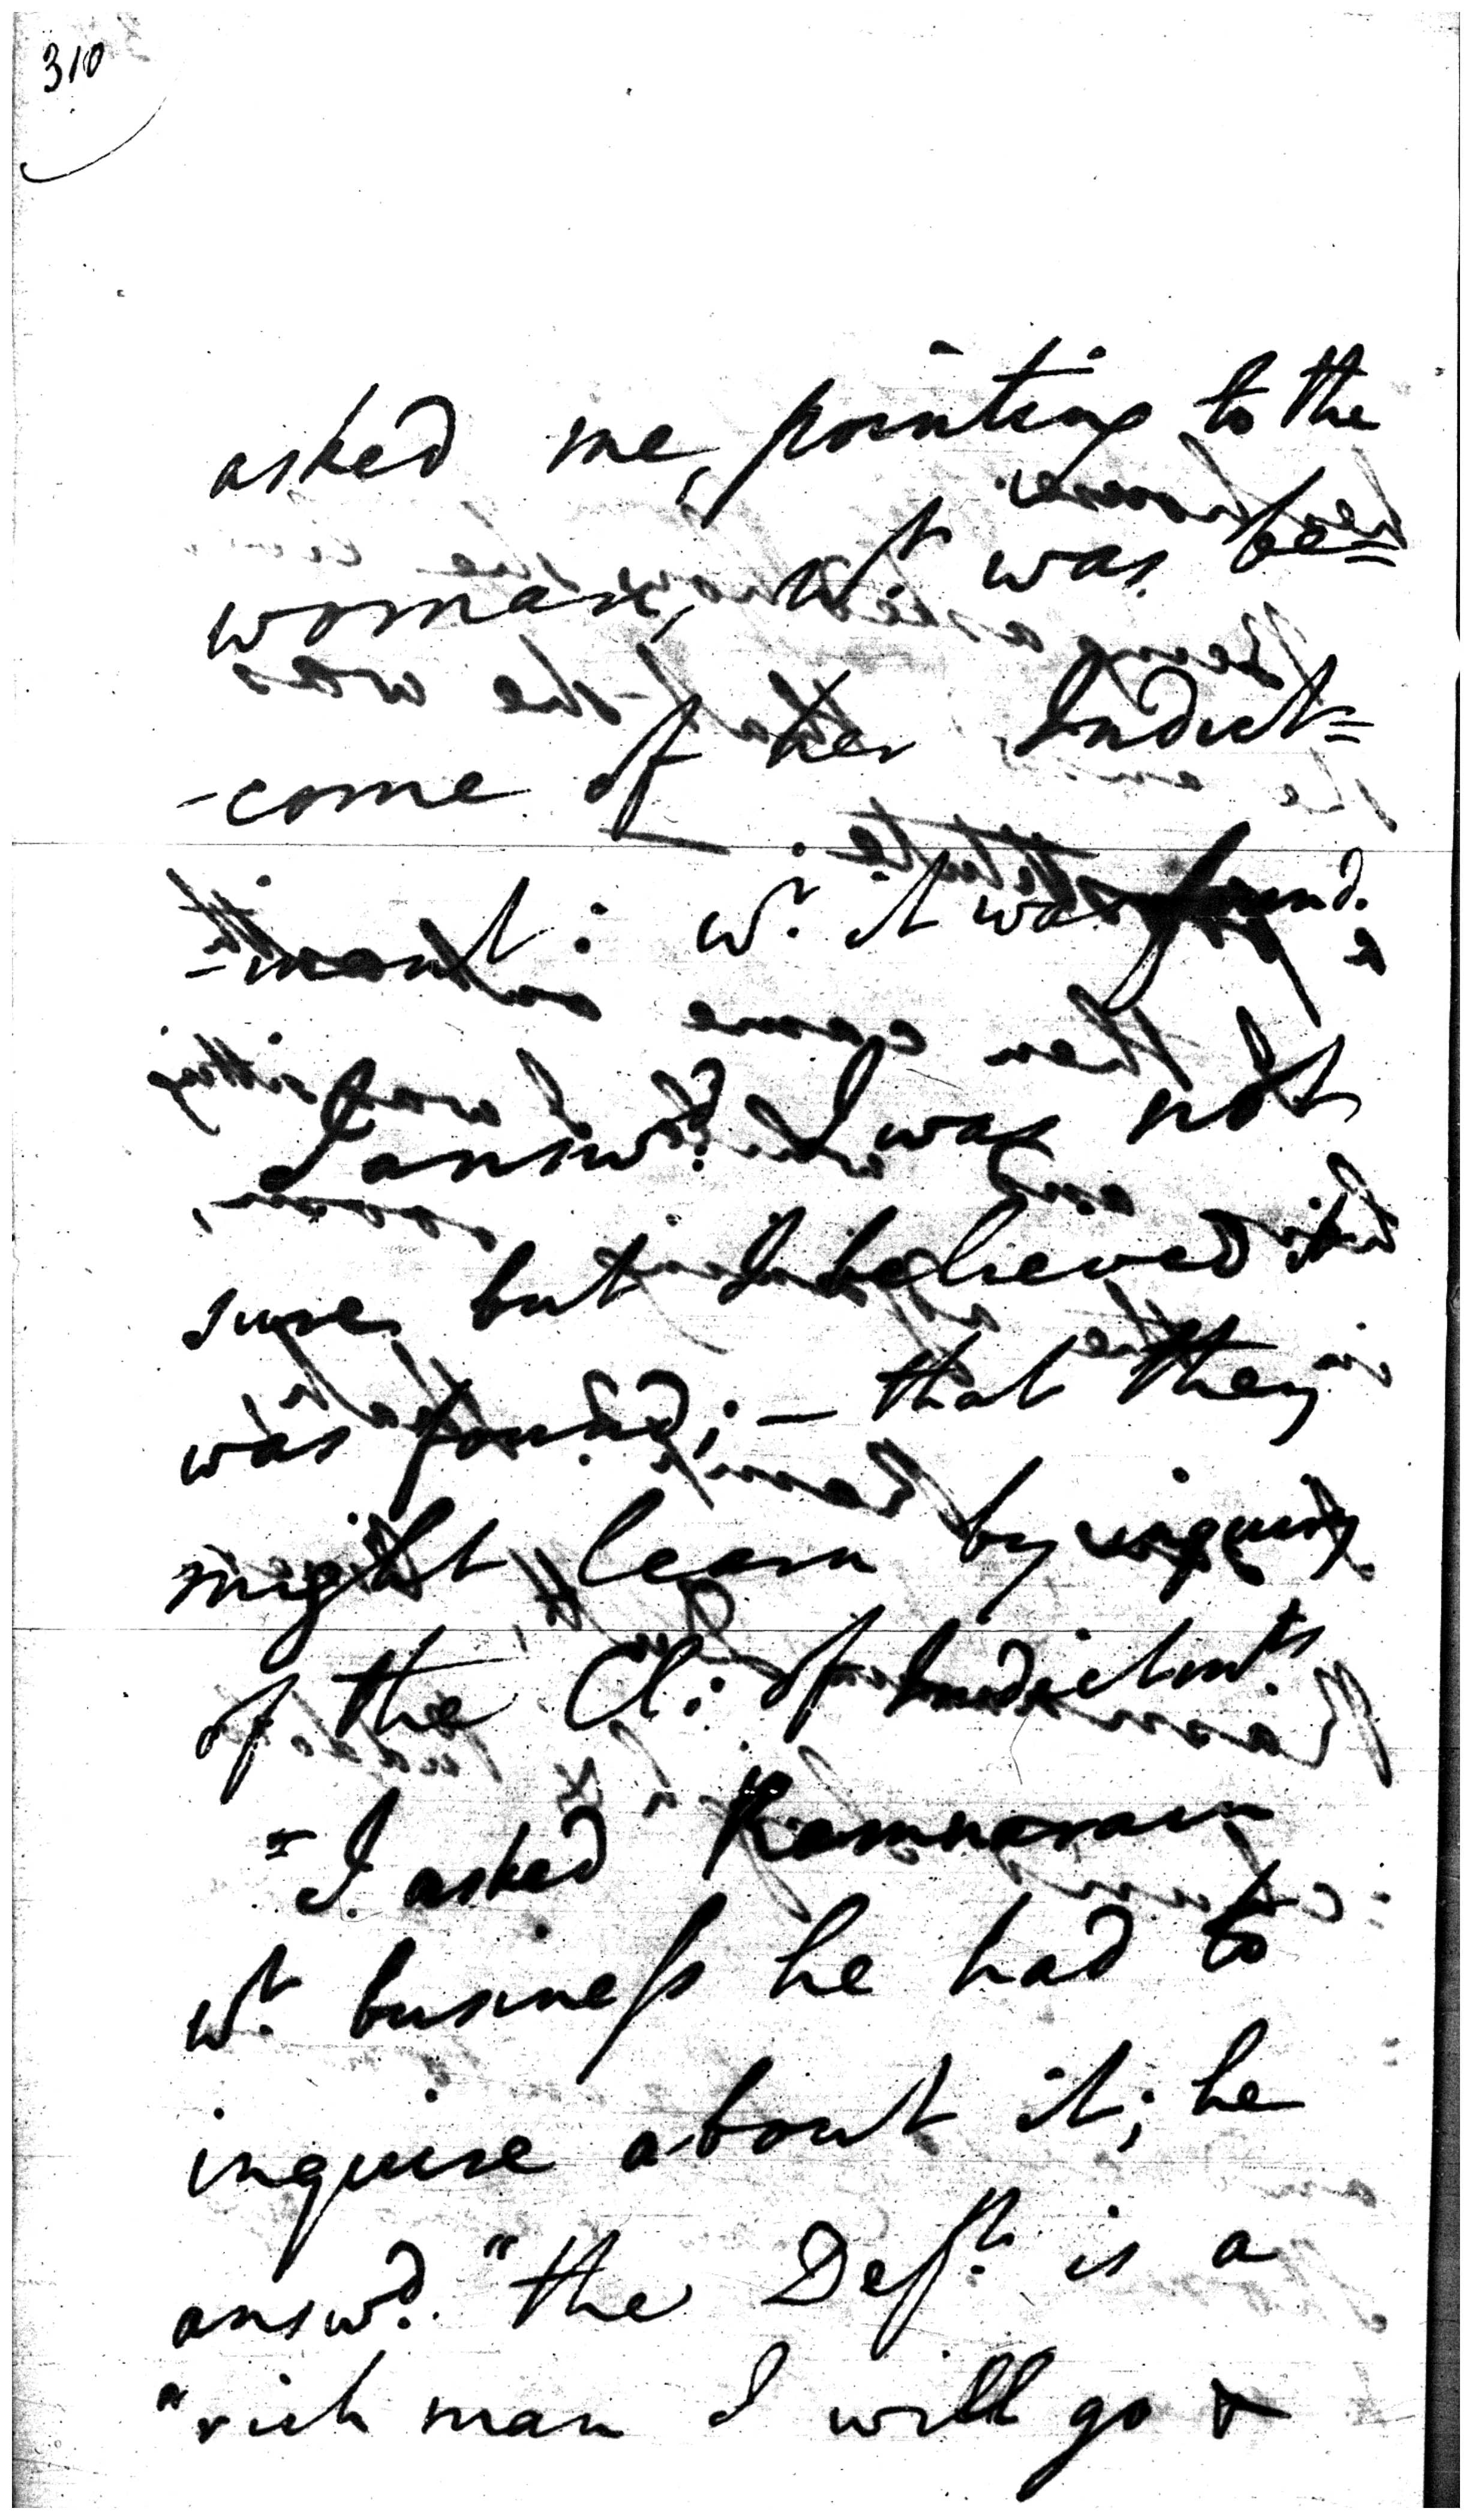 310
asked me, pointing to the
woman, wt. was be=
-come of her Indict=
-ment: wr. it was found.
I answd. I was not
sure, but I believed it
was found; — that they
might learn by inquiry
of the Cl: of Indictmts.
"I asked Ramnarain
wt. business he had to
inquire about it; he
answd. "the Deft. is a
"rich man I will go &